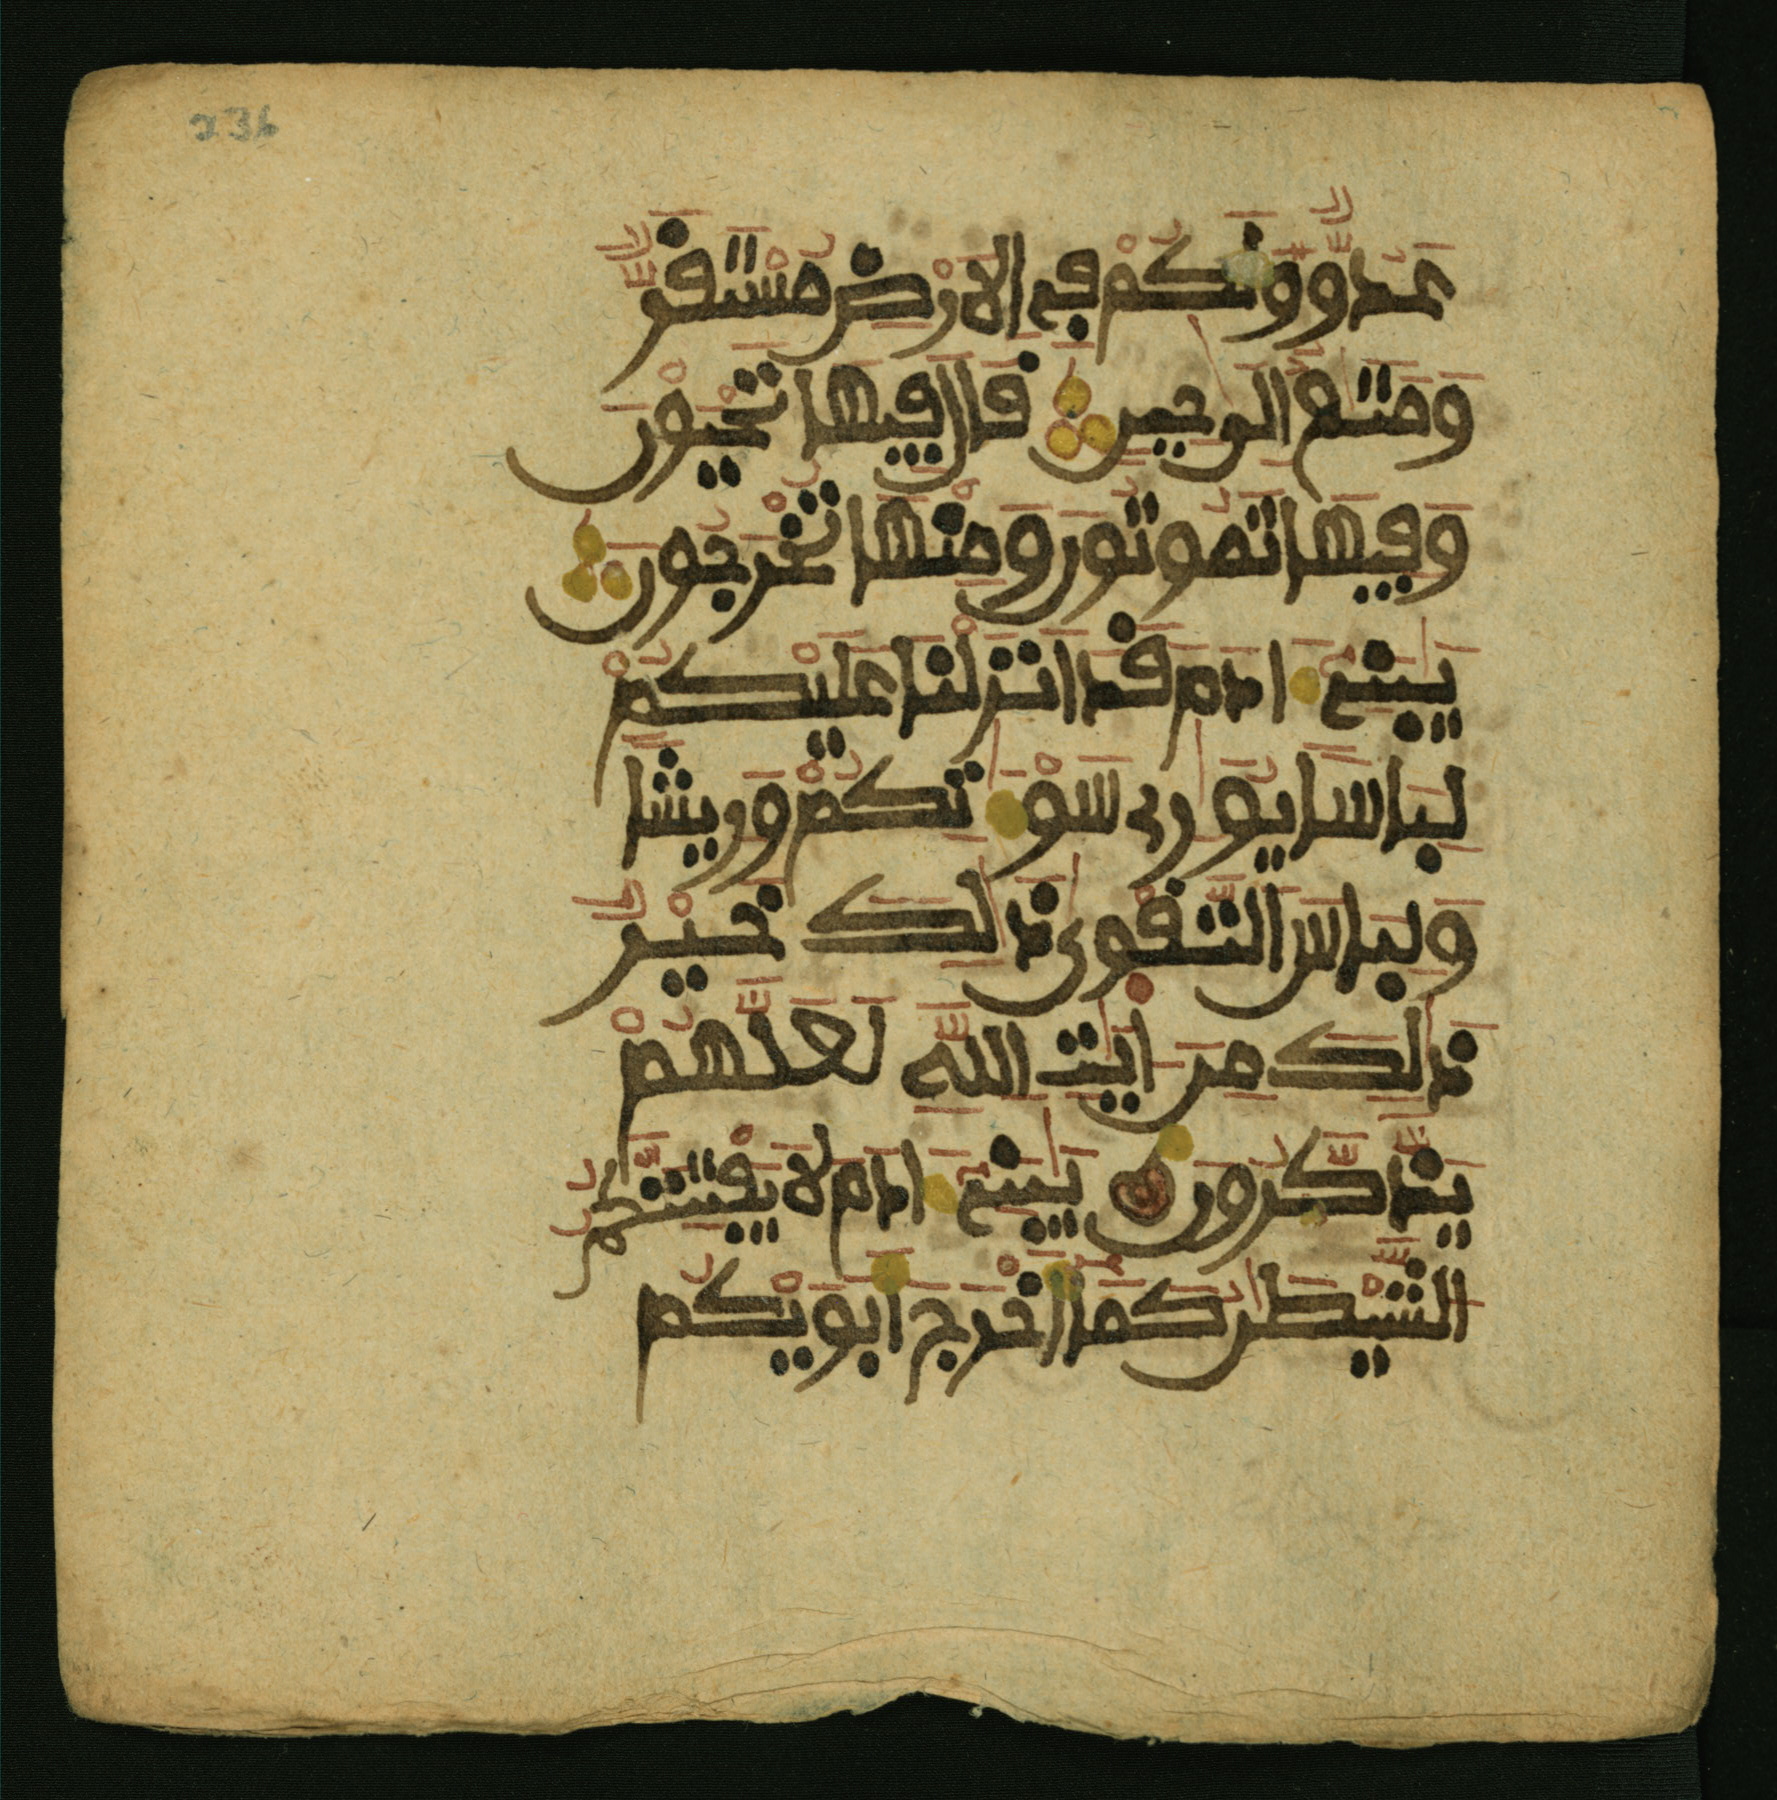 236
عَدُوٌّ وَلَكُمْ فِے الَارْضِ مُسْتَقَرٌّ
وَمَتَٰعٌ اِلَىٰ حِينٍ قَالَ فِيهَا تَحْيَوْنَ
وَفِيهَا تَمُوتُونَ وَمِنْهَا تُخْرَجُونَ
يَٰبَنِےٓ ءَادَمَ قَدَ اَنزَلْنَا عَلَيْكُمْ
لِبَاسًا يُوَٰرِے سَوْءَٰتِكُمْ وَرِيشًا
وَلِبَاسَ اَلتَّقْوَىٰ ذَٰلِكَ خَيْرٌ
ذَٰلِكَ مِنَ اٰيَٰتِ اِللَّهِ لَعَلَّهُمْ
يَذَّكَّرُونَ يَٰبَنِےٓ ءَادَمَ لَا يَفْتِنَنَّكُمُ
الشَّيْطَٰنُ كَمَآ أَخْرَجَ أَبَوَيْكُم